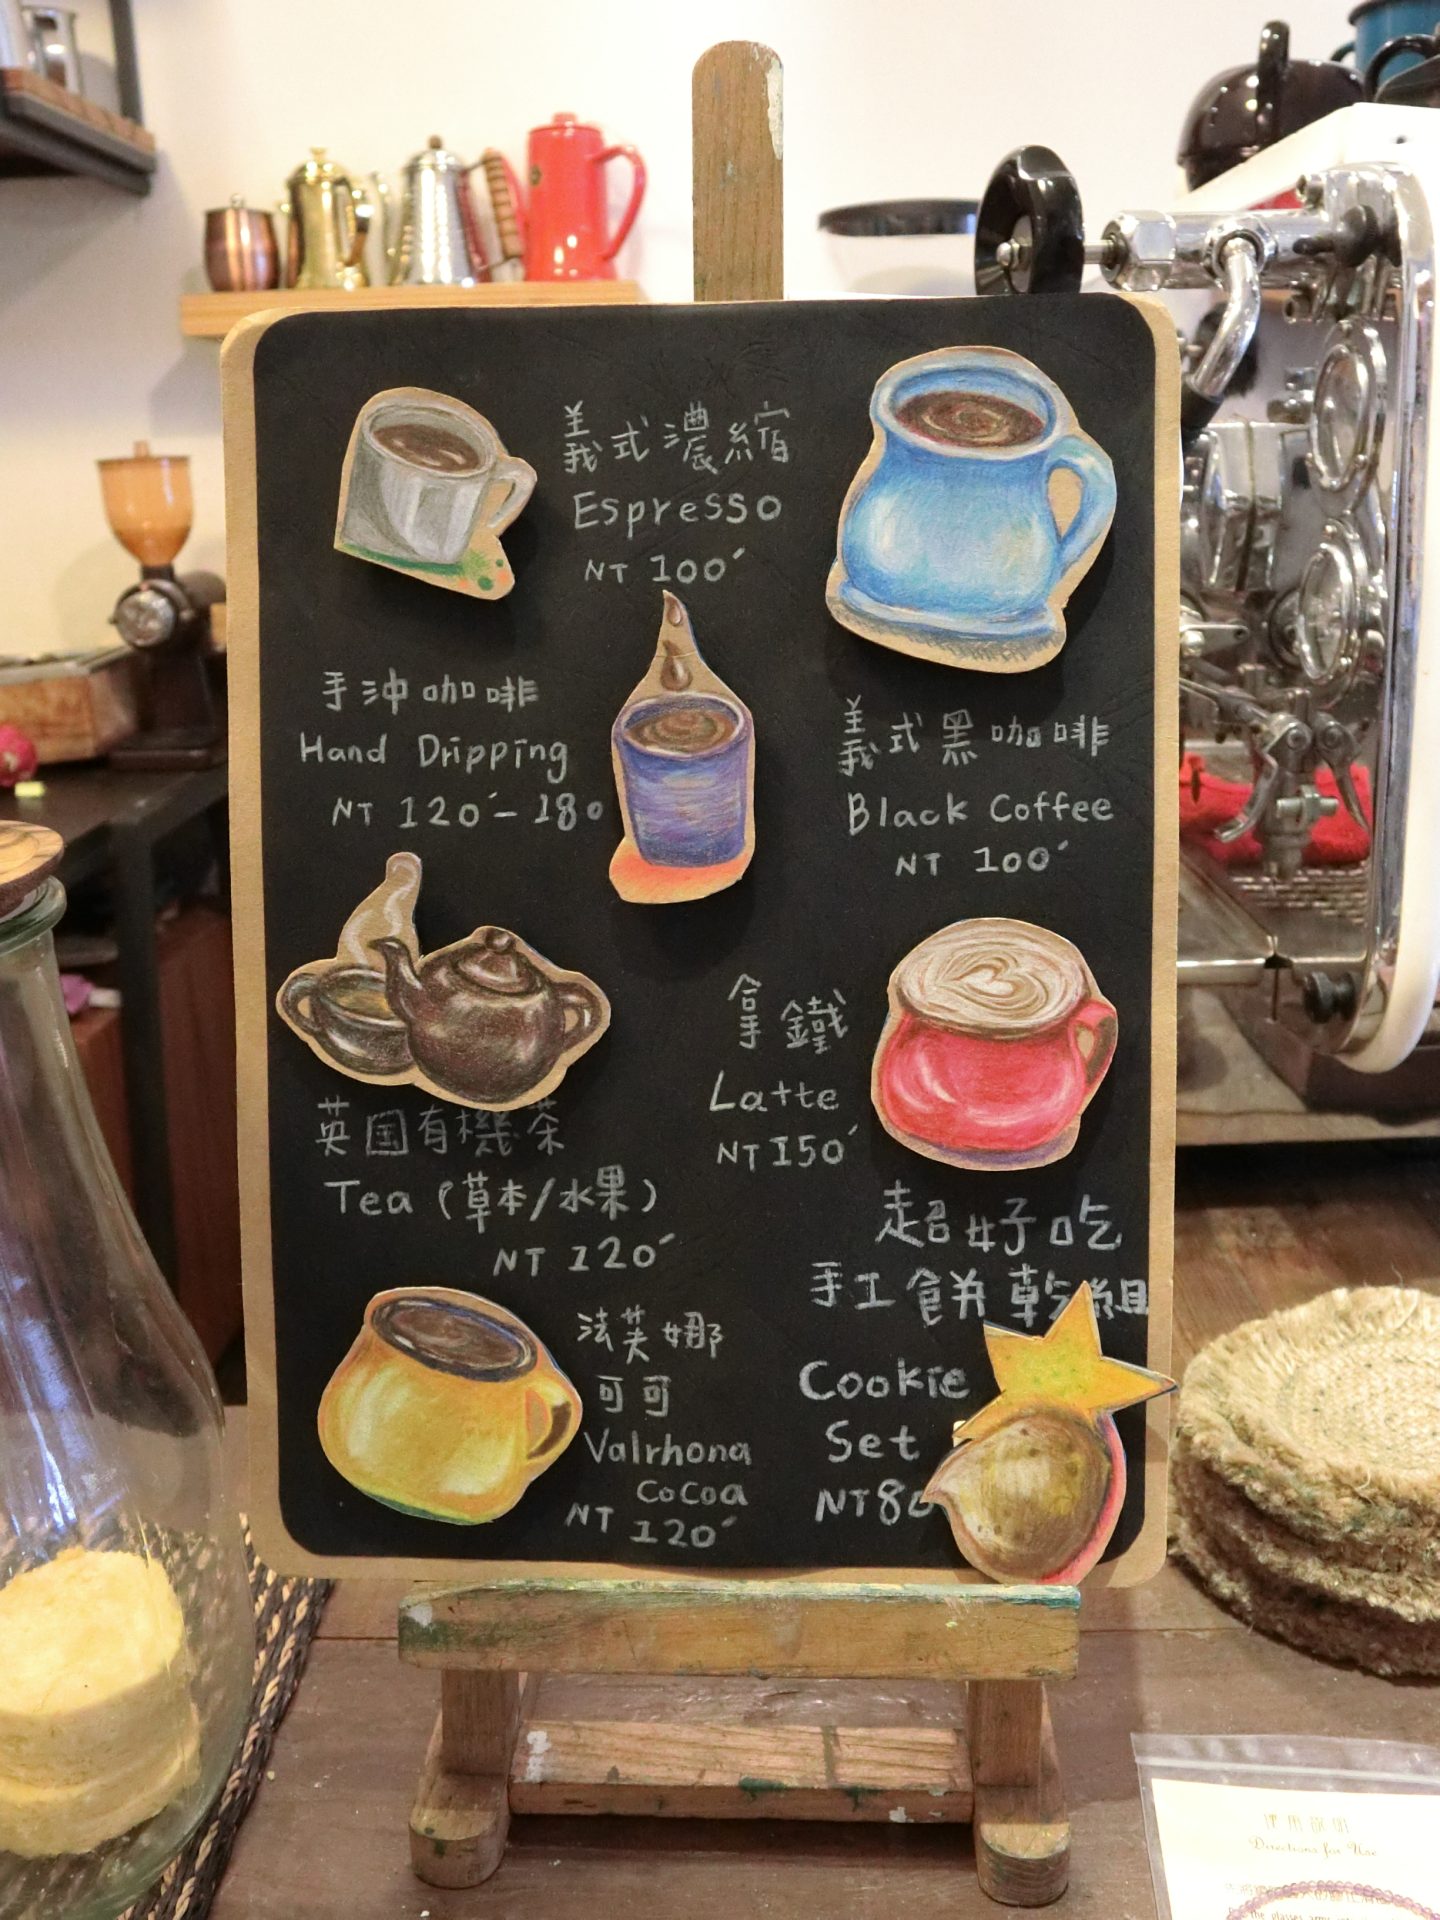 義式濃縮
Espresso
NT 100
手沖咖啡
Hand Dripping
NT 120-180
義式黑咖啡
Black Coffee
NT 100
拿鐵
Latte
NT150
英国有機茶
Tea (草本/水果)
NT 120
超好吃
手工餅乾組
Cookie
Set
NT80
法芙娜
可可
Valrhona
Cocoa
NT 120
Directions for Use